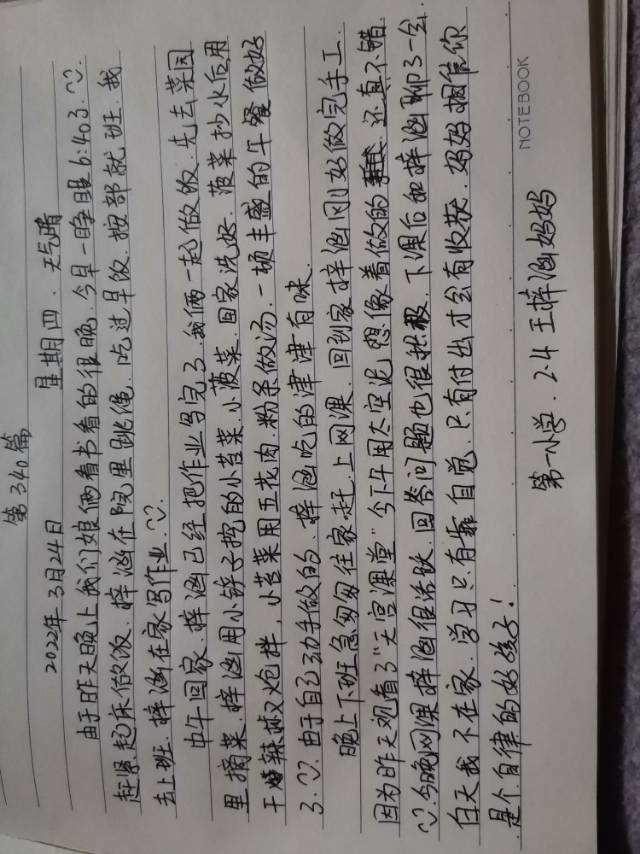 第340篇
2022年3月24日 星期四. 天气晴
由于昨天晚上我们娘俩看书看的很晚. 今早一睁眼6:40了.
赶紧起床做饭. 梓涵在院里跳绳. 吃过早饭. 按部就班. 我
去上班. 梓涵在家写作业.
中午回家. 梓涵已经把作业写完了. 我俩一起做饭. 先去菜园
里摘菜. 梓涵用小铲子挖的小苔菜. 小菠菜. 回家洗好. 菠菜抄水后用
干辣椒炝拌, 小苔菜用五花肉. 粉条做汤. 一顿丰盛的午餐做好
了. 由于自己动手做的. 梓涵吃的津津有味.
晚上下班急匆匆往家赶. 上网课. 回到家梓涵刚好做完手工.
因为昨天观看了"天宫课堂"今下午用太空泥想像着做的 还真不错
今晚网课梓涵很活跃. 回答问题也很积极. 下课后和梓涵聊了一会.
白天我不在家. 学习只有靠自觉. 只有付出才会有收获. 妈妈相信你
是个自律的好孩子!
第一小学. 2.4 王梓涵妈妈
NOTEBOOK